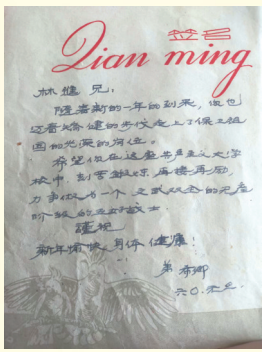 签名
Qian ming
林健兄：
随着新的一年的到来，你也
迈着矫健的步伐走上了保卫祖
国的光荣的岗位。
希望你在这座共产主义大学
校中，刻苦锻炼，再接再励，
力争做为一个文武双全的无产
阶级的战士
谨祝
新年愉快，身体健康！
弟
六〇.元.